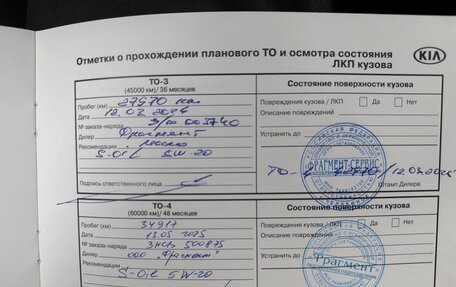 Отметки о прохождении планового ТО и осмотра состояния
ЛКП кузова
KIA
ТО-3
(45000 км)/ 36 месяцев
Состояние поверхности кузова
Пробег (км) 27970 км
Повреждения кузова / ЛКП Да Нет
Дата 12.03.2024
Описание повреждений
№ заказа-наряда З/н 003740
Дилер Фрагмент
Устранить до
Рекомендации масло
S-OIL 5W-20
ФРАГМЕНТ-СЕРВИС
ТО-
Подпись ответственного лица
Штамп Дилера
ТО-4
(60000 км)/ 48 месяцев
Состояние поверхности кузова
Пробег (км) 34917
Повреждения кузова / ЛКП Да Нет
Дата 13.05.2025
Описание повреждений
№ заказа-наряда 500875
Дилер ООО "Фрагмент"
Устранить до
Рекомендации
S-OIL 5W-20
"Фрагмент"